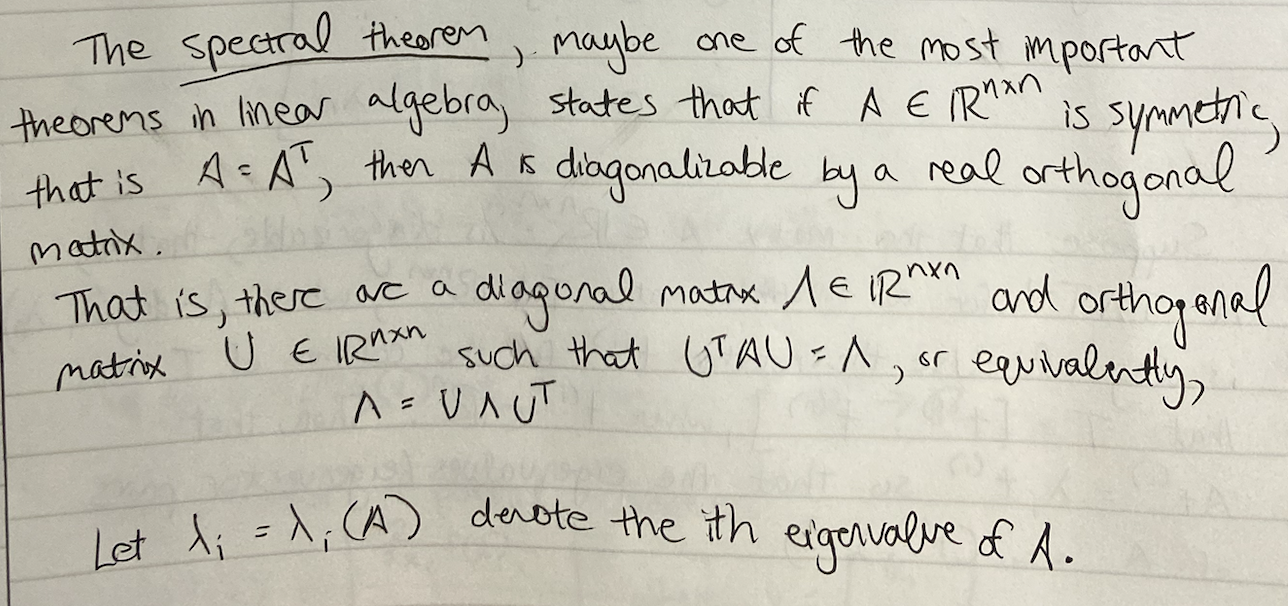 The spectral theorem, maybe one of the most important
theorems in linear algebra, states that if A ∈ ℝⁿˣⁿ is symmetric,
that is A = Aᵀ, then A is diagonalizable by a real orthogonal
matrix.
That is, there are a diagonal matrix Λ ∈ ℝⁿˣⁿ and orthogonal
matrix U ∈ ℝⁿˣⁿ such that UᵀAU = Λ, or equivalently,
Λ = UΛUᵀ
Let λᵢ = λᵢ(A) denote the ith eigenvalue of A.